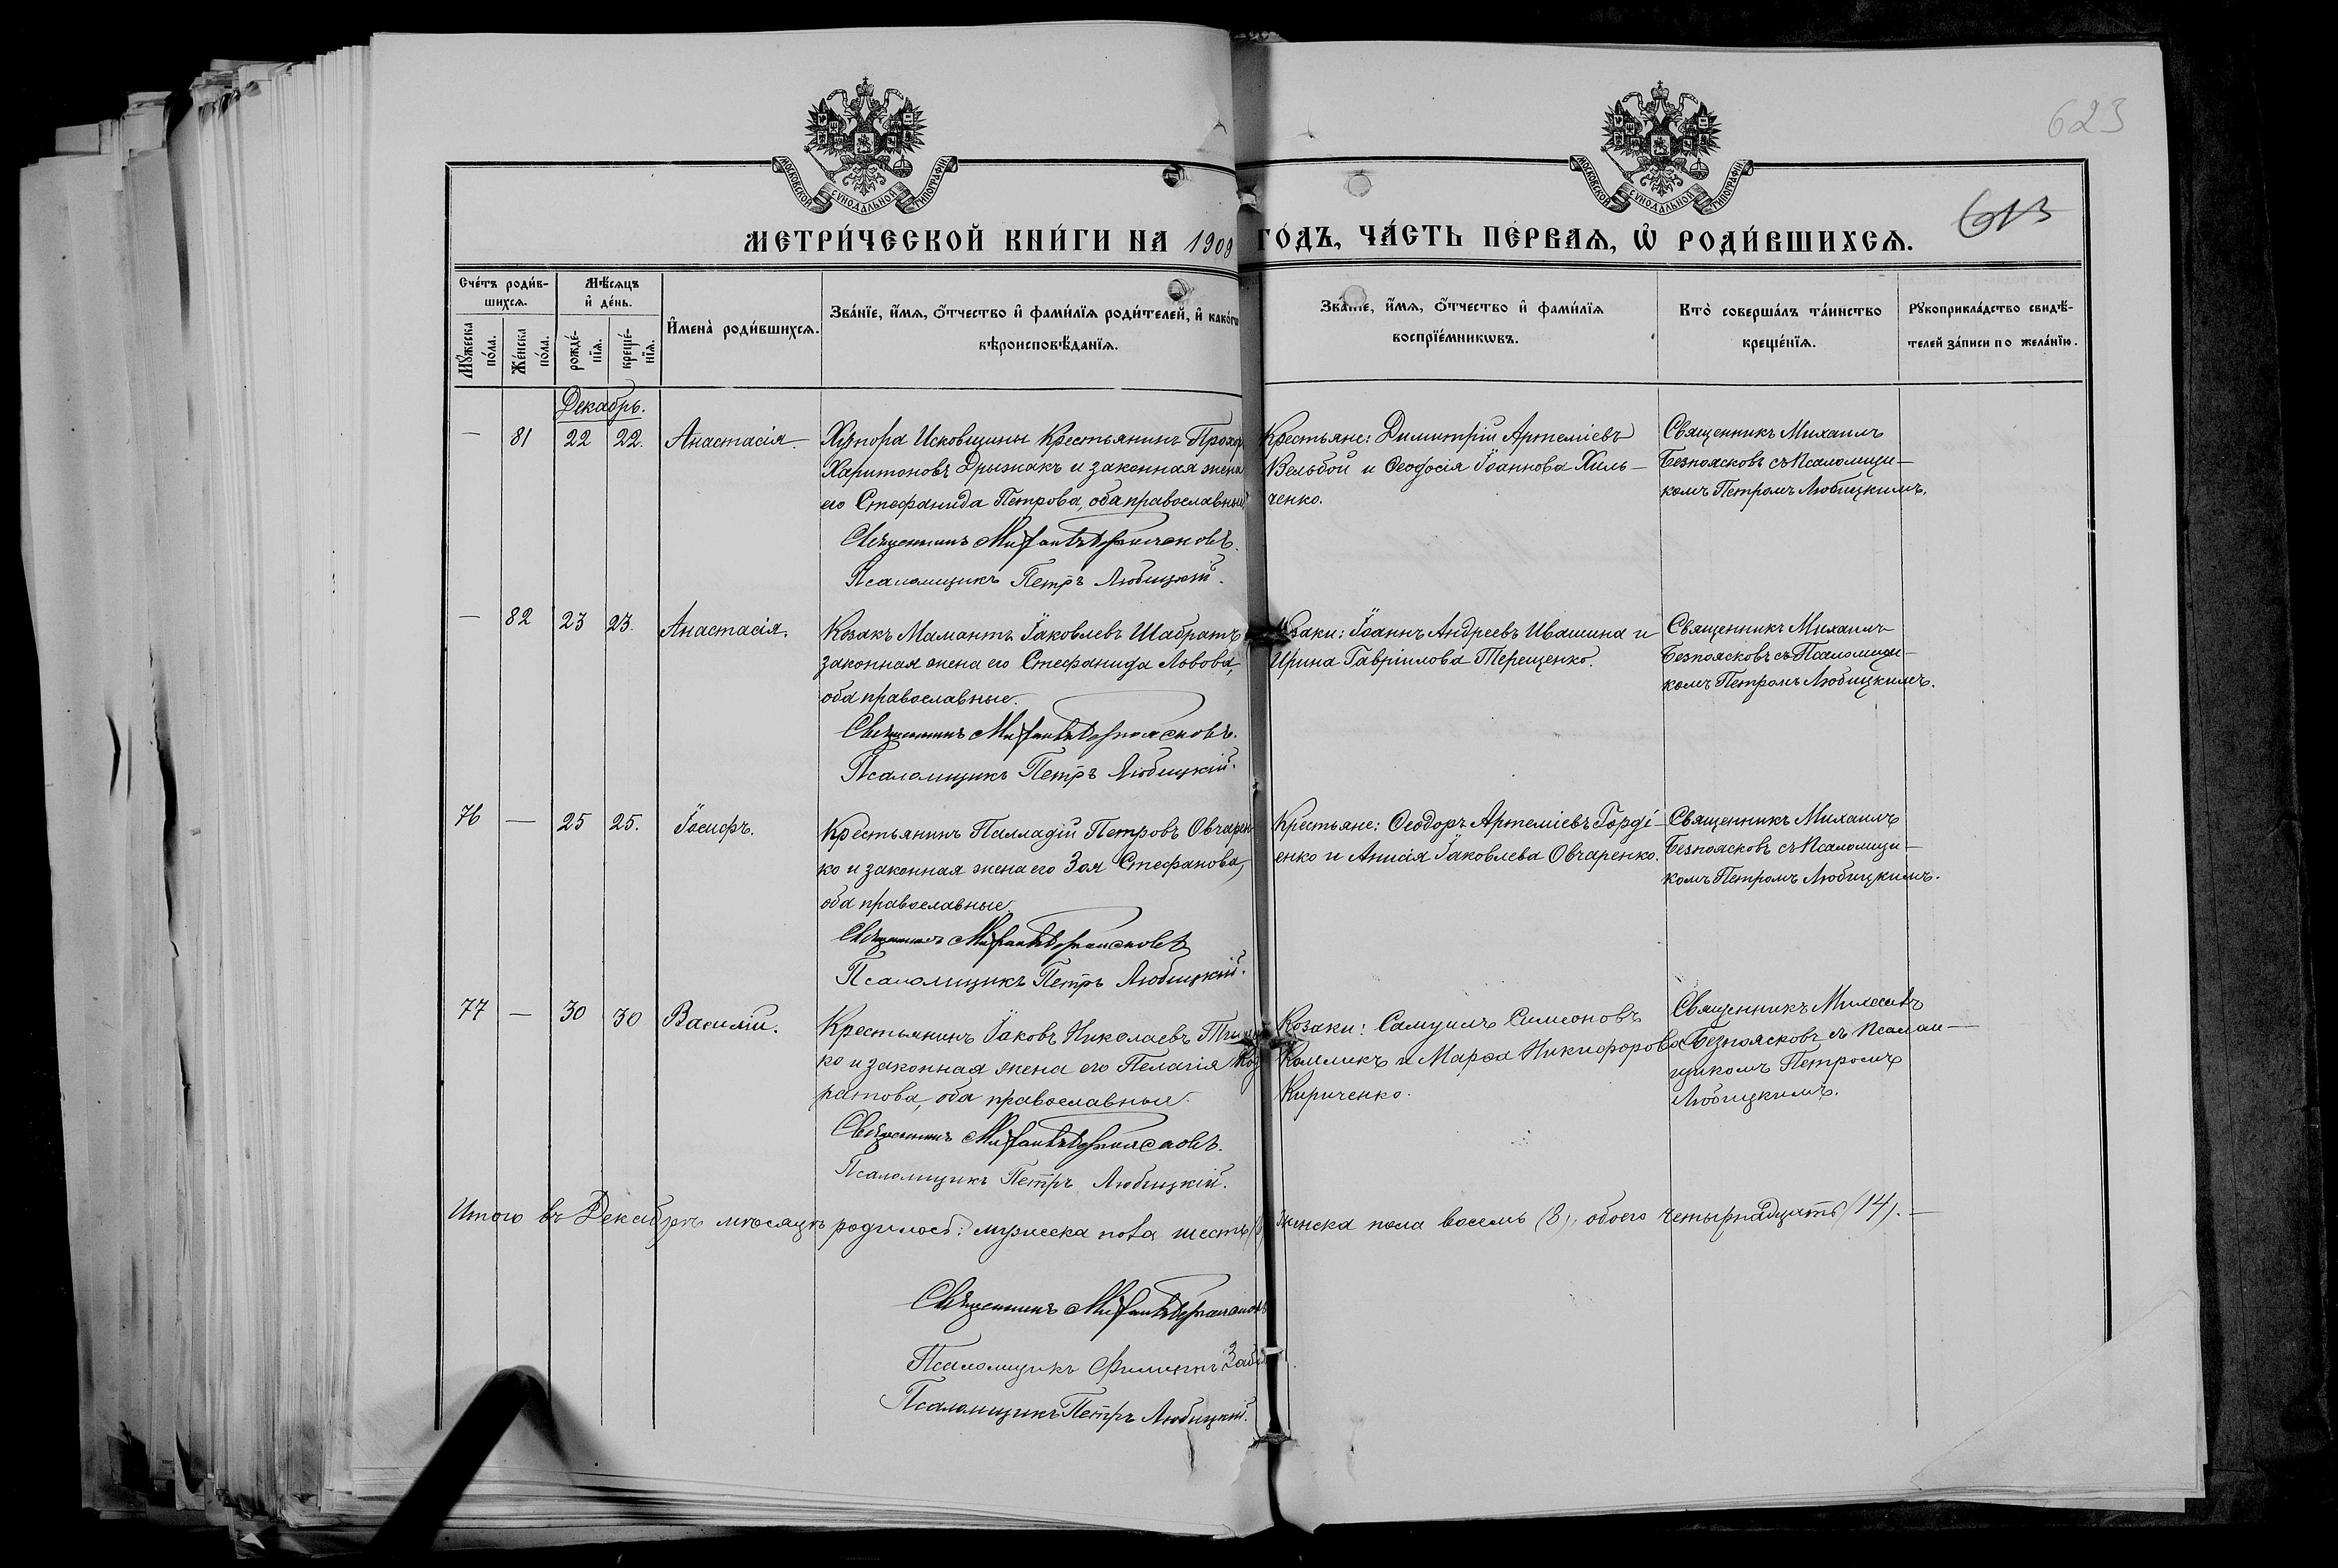 623
613
МОСКОВСКОЙ СѴНОДАЛЬНОЙ ТИПОГРАФІИ
МОСКОВСКОЙ СѴНОДАЛЬНОЙ ТИПОГРАФІИ
МЕТРИ́ЧЕСКОЙ КНИ́ГИ НА 1909 ГО́ДЪ, ЧА́СТЬ ПЕ́РВАѦ, Ѡ҆ РОДИ́ВШИХСѦ.
Сче́тъ роди́в-
шихсѧ.
Мꙋ́жеска
по́ла.
Же́нска
по́ла.
Мѣ́сѧцъ
и҆ де́нь.
рожде́-
нїѧ.
креще́-
нїѧ.
И҆мена̀ роди́вшихсѧ.
Зва́нїе, и҆́мѧ, ѻ҆́тчество и҆ фами́лїѧ роди́телей, и҆ како́гѡ
вѣроисповѣ́данїѧ.
Зва́нїе, и҆́мѧ, ѻ҆́тчество и҆ фами́лїѧ
воспрїе́мникѡвъ.
Кто̀ соверша́лъ та́инство
креще́нїѧ.
Рꙋкоприкла́дство свидѣ́-
телей за́писи по жела́нїю.
Декабрь.
— 81 22 22. Анастасія.
Хутора Исковщины Крестьянинъ Прохоръ
Харитоновъ Дрыжакъ и законная жена
его Стефанида Петрова, оба православные
Священникъ Михаилъ Безпоясковъ.
Псаломщикъ Петръ Любицкій.
Крестьяне: Димитрій Артеміевъ
Вельбой и Ѳеодосія Іоаннова Хиль-
ченко.
Священникъ Михаилъ
Безпоясковъ съ Псаломщи-
комъ Петромъ Любицкимъ.
— 82 23 23. Анастасія.
Козакъ Мамантъ Іаковлевъ Шабратъ
законная жена его Стефанида Львова,
оба православные.
Священникъ Михаилъ Безпоясковъ.
Псаломщикъ Петръ Любицкій.
Козаки: Іоаннъ Андреевъ Ивашина и
Ирина Гавріилова Терещенко.
Священникъ Михаилъ
Безпоясковъ съ Псаломщи-
комъ Петромъ Любицкимъ.
76 — 25 25. Іосифъ.
Крестьянинъ Палладій Петровъ Овчарен-
ко и законная жена его Зоя Стефанова,
оба православные.
Священникъ Михаилъ Безпоясковъ
Псаломщикъ Петръ Любицкій.
Крестьяне: Ѳеодоръ Артеміевъ Горді-
енко и Анисія Іаковлева Овчаренко.
Священникъ Михаилъ
Безпоясковъ съ Псаломщи-
комъ Петромъ Любицкимъ.
77 — 30 30 Василій.
Крестьянинъ Іаковъ Николаевъ
ко и законная жена его Пелагія Код
ратова, оба православные.
Священникъ Михаилъ Безпоясковъ.
Псаломщикъ Петръ Любицкій.
Козаки: Самуилъ Симеоновъ
и Марѳа Никифорова
Кириченко.
Священникъ Михаилъ
Безпоясковъ съ Псалом-
щикомъ Петромъ
Любицкимъ.
Итого въ Декабрѣ мѣсяцѣ родилось: мужеска пола шесть (6) женска пола восемь (8), обоего четырнадцать (14). —
Священникъ Михаилъ Безпоясковъ
Псаломщикъ Филиппъ
Псаломщикъ Петръ Любицкій.